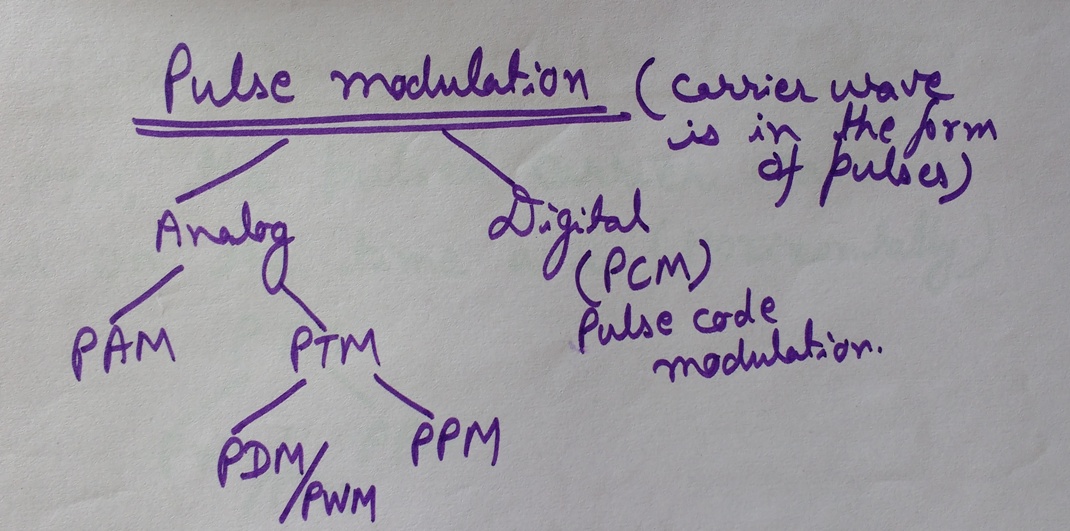 Pulse modulation (carrier wave
is in the form
of pulses)
Analog
Digital
(PCM)
Pulse code
modulation.
PAM
PTM
PDM/PWM
PPM